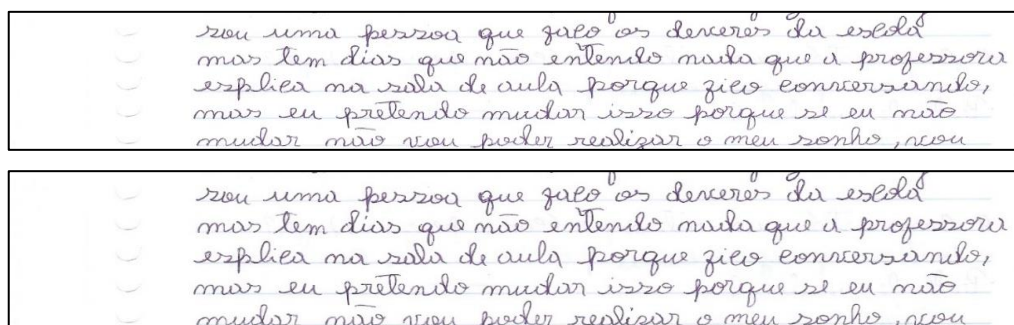 sou uma pessoa que faço os deveres da escola
mas tem dias que não entendo nada que a professora
explica na sala de aula porque fico conversando,
mas eu pretendo mudar isso porque se eu não
mudar não vou poder realizar o meu sonho, vou
sou uma pessoa que faço os deveres da escola
mas tem dias que não entendo nada que a professora
explica na sala de aula porque fico conversando,
mas eu pretendo mudar isso porque se eu não
mudar não vou poder realizar o meu sonho, vou